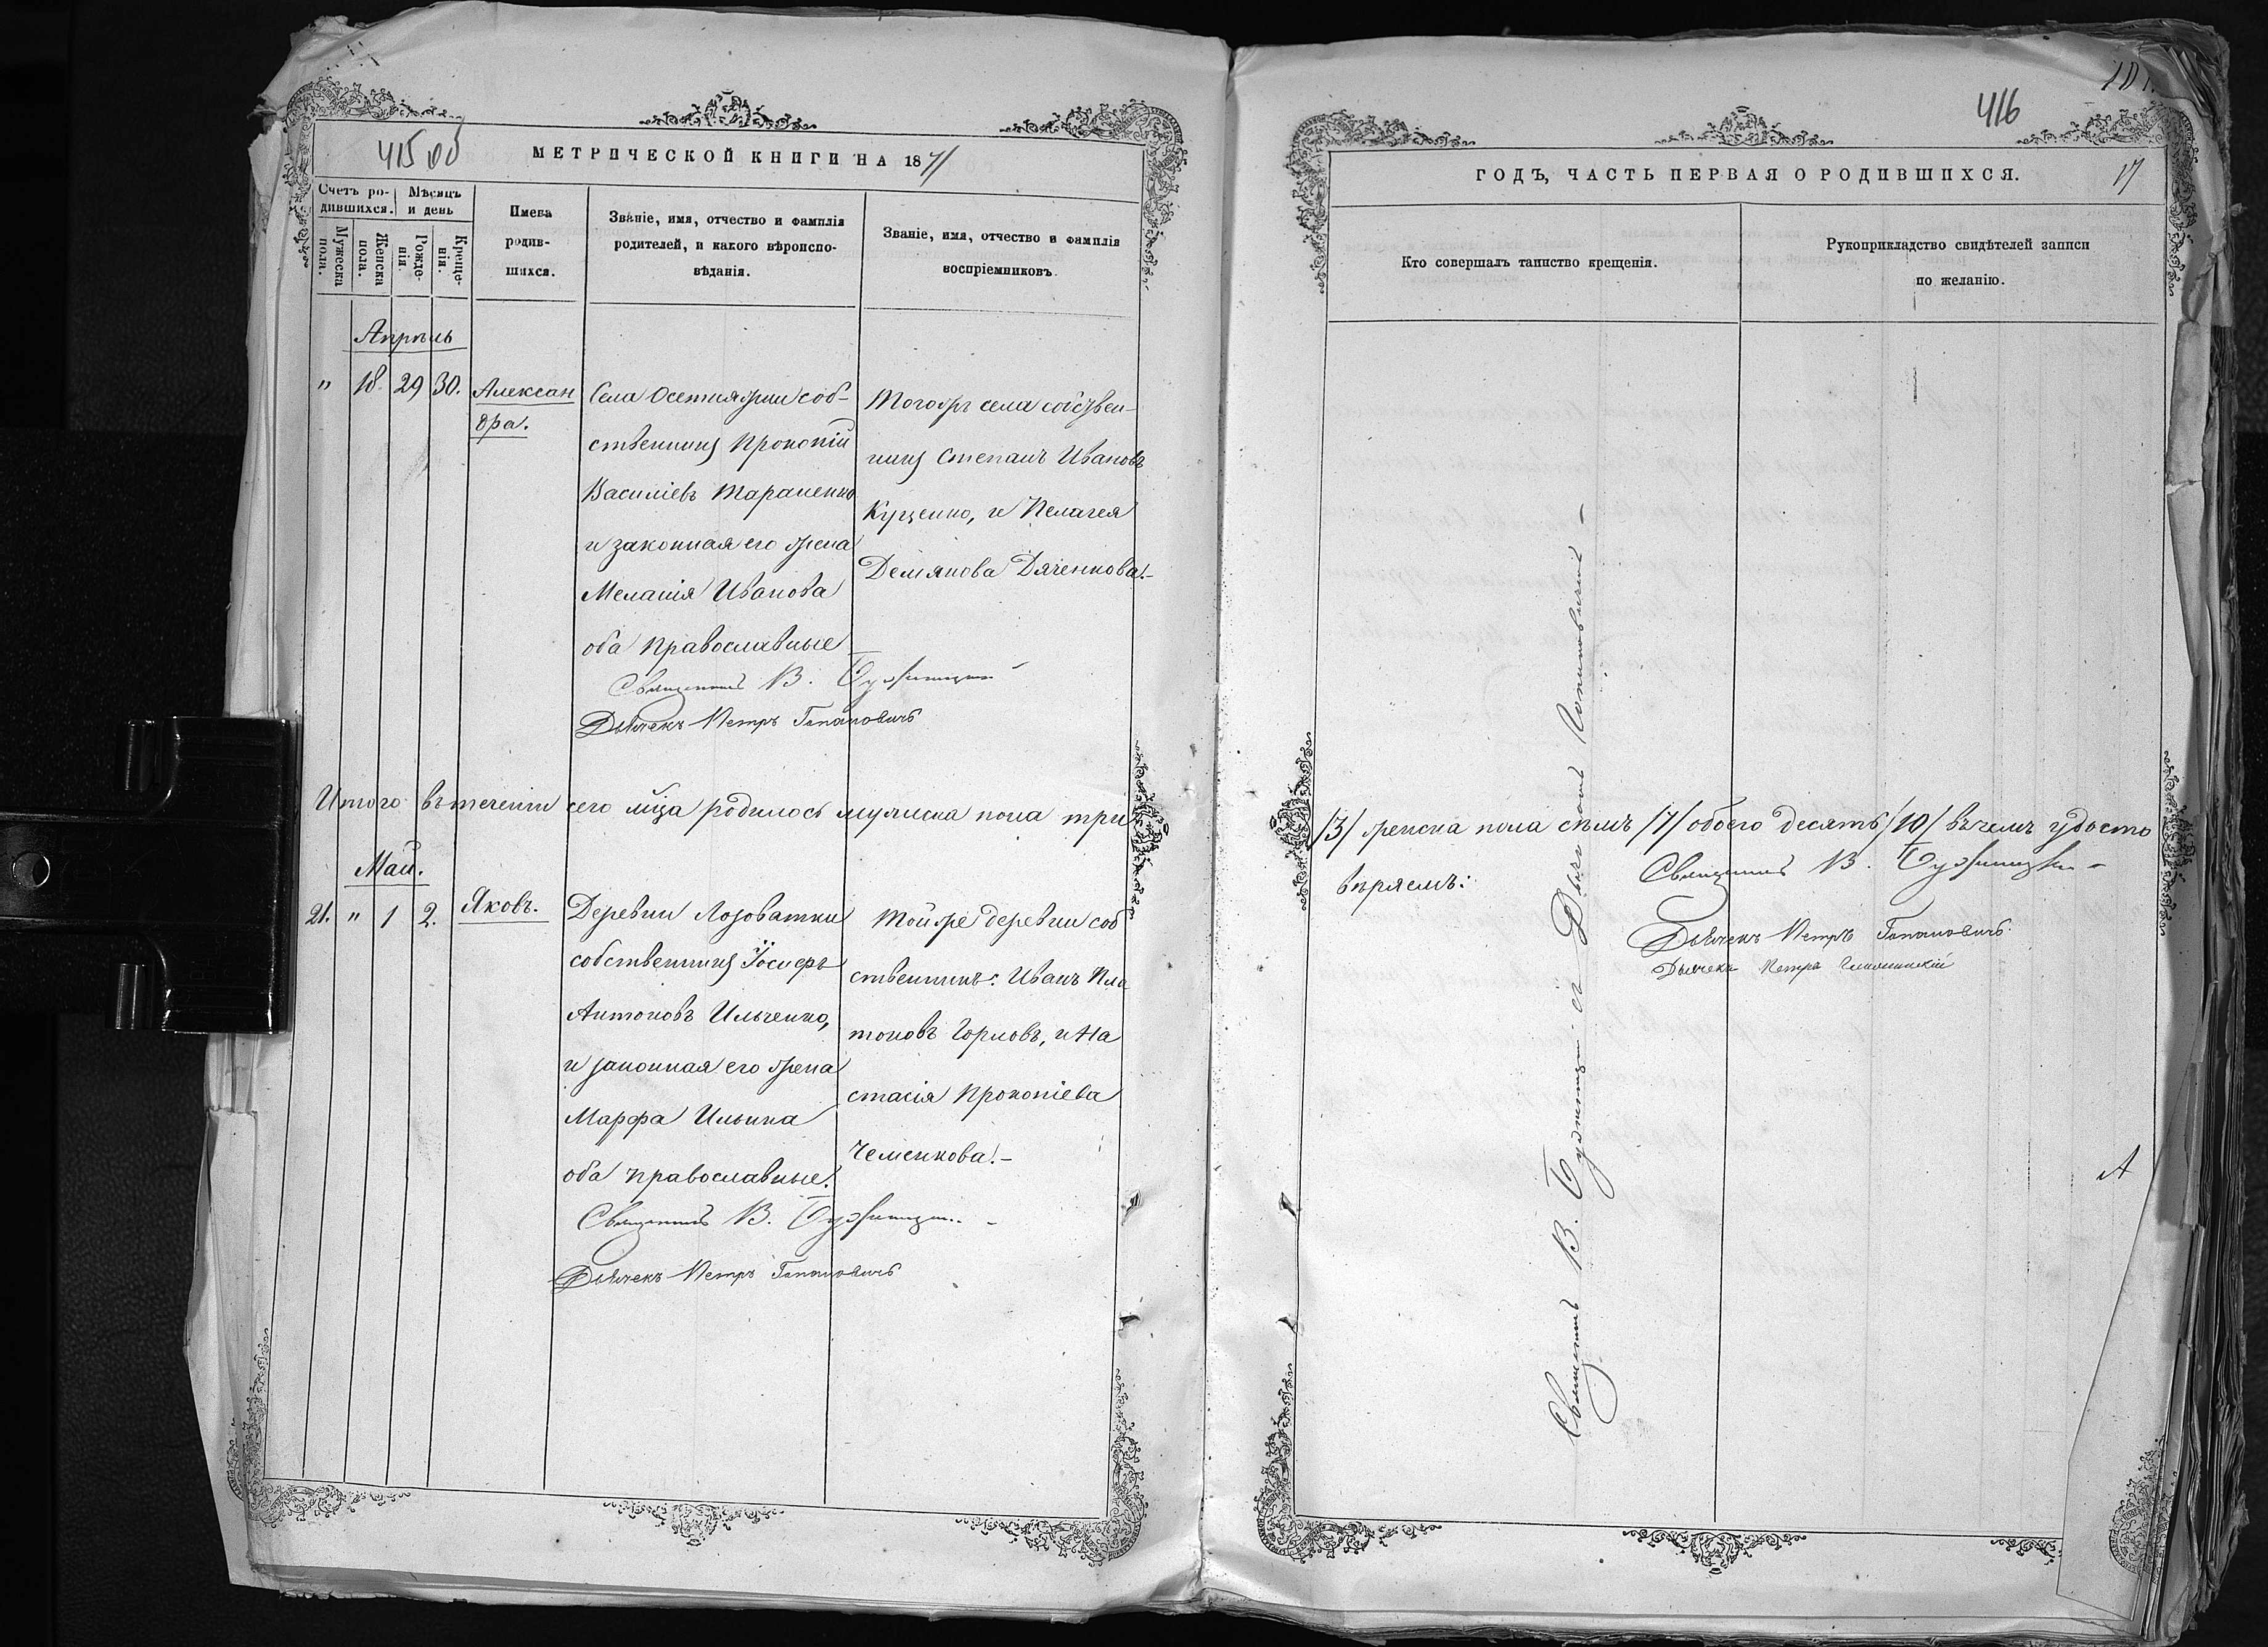 415 об
МЕТРИЧЕСКОЙ КНИГИ НА 1871
Счетъ ро-
дившихся.
Мѣсяцъ
и день
Мужеска
пола.
Женска
пола.
Рожде-
нія.
Креще-
нія.
Имена
родив-
шихся.
Званіе, имя, отчество и фамилія
родителей, и какого вѣроиспо-
вѣданія.
Званіе, имя, отчество и фамилія
воспріемниковъ
Апрѣль
" 18. 29 30.
Алексан
дра.
Села Осетняжки соб-
ственникъ Прокопій
Василіевъ Тараненко
и законная его жена
Меланія Иванова
оба православные
Тогожъ села собствен-
никъ Степанъ Ивановъ
Куценко, и Пелагея
Демянова Дяченкова.-
Священникъ В.
Дьячекъ Петръ
Итого въ теченіи сего мѣца родилось мужеска пола три
Май.
21. " 1 2.
Яковъ.
Деревни Лозоватки
собственникъ Іосифъ
Антоновъ Ильченко,
и законная его жена
Марфа Ильина
оба православные.
Тойже деревни соб
ственникъ: Иванъ Пла
тоновъ Горловъ, и На
стасія Прокопіева
Чеменкова.-
Священникъ В.
Дьячекъ Петръ
101.
416
17
ГОДЪ, ЧАСТЬ ПЕРВАЯ О РОДИВШИХСЯ.
Кто совершалъ таинство крещенія.
Рукоприкладство свидѣтелей записи
по желанію.
/3/ женска пола сѣмъ /7/ обоего десять /10/ въ чемъ удосто
вѣряемъ:
Священникъ В.
Дьячекъ Петръ
Дьячекъ Петръ
Священникъ В. и Дьячекъ
А